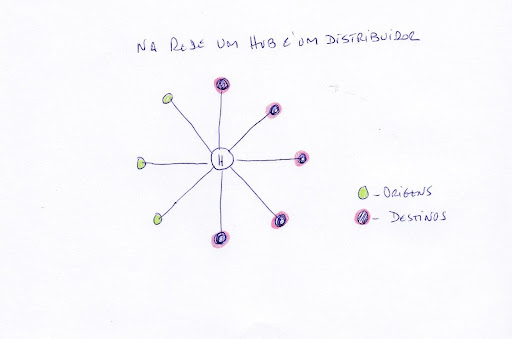 NA REDE UM HUB É UM DISTRIBUIDOR
H
- ORIGENS
- DESTINOS